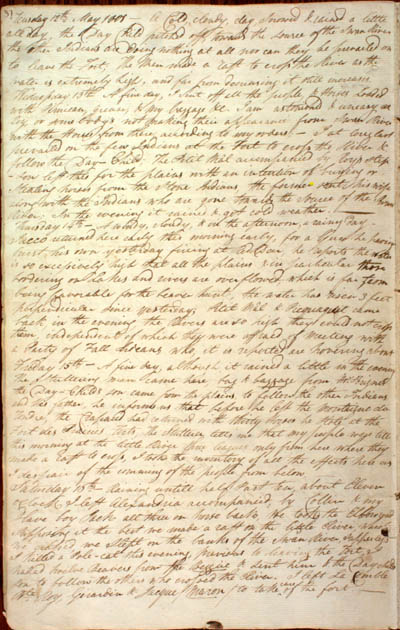 Tuesday 12th May 1801 A Cold, cloudy, day Snowed & raind a little
all day, the Day Child pitched off towards the source of the Swan River
the other Indians are doing nothing at all nor can they be prevailed on
to leave the Fort. The Men made a raft to cross the River as the
water is extremely high, and far from decreasing it still increases
Wednesday 13th A fine day, I sent off all the people & Horses Loaded
with Pemican, grease, & my baggage &c. I am astonished & uneasy at
Roy or some body's not making their appearance from Swan River
with the Horses from there according to my orders — I at length
prevailed on the few Indians at the Fort to cross the River &
follow the Day Child. The Petit Mâl accompanied by
left this for the plains with an intention of buying or
Stealing horses from the Stone Indians the former sent his wife
along with the Indians who are gone towards the source of the
River. In the evening it rained & got cold weather.
Thursday 14th A windy cloudy, & in the afternoon a rainy day.
returned here early this morning, for a Gun he having
burst, his own yesterday firing at a. He reports the water
is so excessively high that all the plains & in particular those
bordering on Lakes and rivers are overflowed which is far from
being favourable for the beaver hunt. the water has risen 3 feet
perpendicular since yesterday. Petit Mâl & came
back in the evening the Rivers are so high they could not cross
them independent of which they were afraid of meeting with
a Party of Fall Indians who, it is reported are hovering about
Friday 15th — A fine day, although it rained a little in the evening
the man came here bag & baggage from
the Day Child's son came from the plains to follow the other Indians
and his father, he informs us that before he left the Montagne du
has returned with thirty horses he stole at the
Fort des. The tells me that my people were all
this morning at the little River five leagues only from here where they
made a raft to cross, I took the inventory of all the effects here as
I despair of the comming of the people from below
Saturday 16th Raining untill half Past Ten, about Eleven
o'Clock I left Alexandria accompanied by Collin & my
Slave boy Jack all three on horse back. We took the
supposing it the best we made a raft on the little River where
we crossed we slept on the banks of the Swan River supperless
I killed a Pole-cat this evening, previous to leaving the Fort I
traded twelve Beavers from & sent him & the Day Child's
son to follow the others who crossed the River. I left La Comble
Wm. Roy Girardin & Jacque (Macon) to take care of the fort —